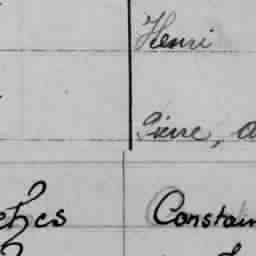 Henri
Pierre, a
ches Constan